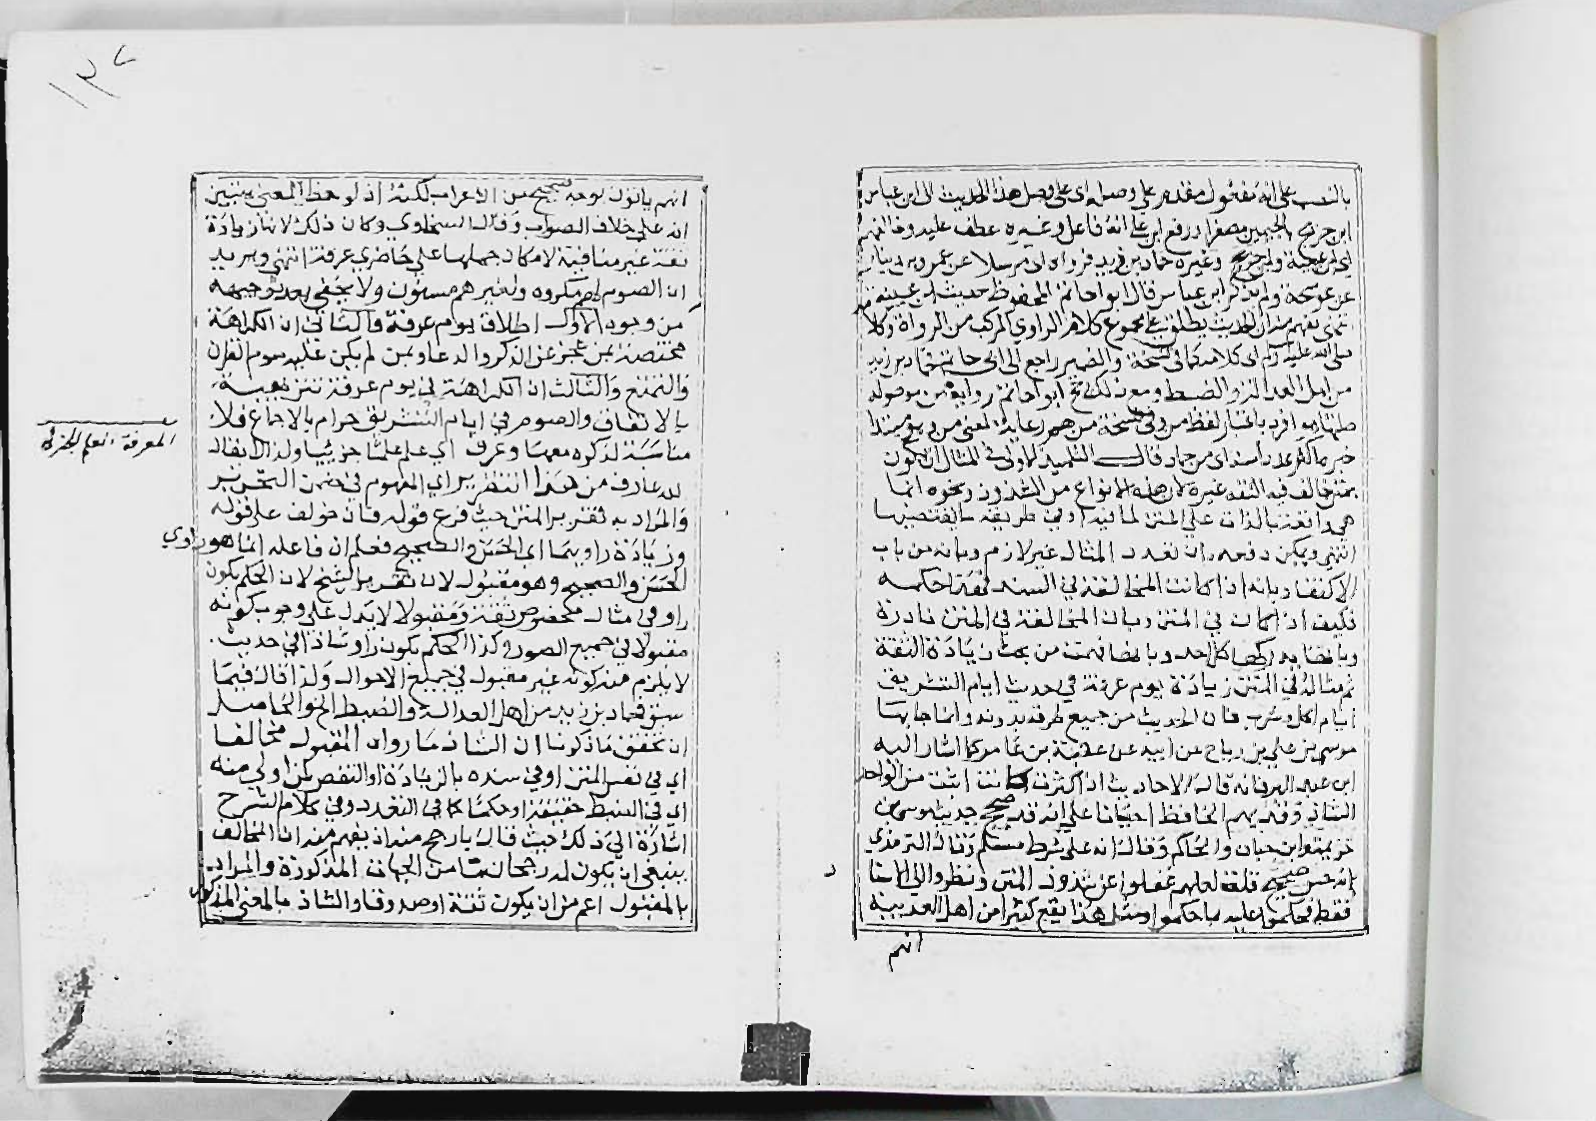 بالنصب على انه مفعول مقدم على وصله اى على وصل هذا الحديث الى ابن عباس
ابن جريج بالجيمين مصغرا ورفع ابن على انه فاعل وغيره عطف عليه وخالفهم
وغيره حماد بن زيد فرواه اى مرسلا عن عمرو بن دينار
عن عوسجة ولم يذكر ابن عباس قال ابو حاتم المحفوظ حديث ابن عيينة
انتهى يفهم منه ان الحديث يطلق على مجموع كلام الراوي المركب من الرواة وكلا
صلى الله عليه وسلم اى كلامه كما في نسخة والضمير راجع الى ابى حاتم حماد بن زيد
من اهل العدالة والضبط ومع ذلك رجح ابو حاتم رواية من
افرد باعتبار لفظ من وفي نسخة من هم رعاية لمعنى من
خبر ما اكثر عددا منه اى من حماد قال التلميذ الاولى في المثال ان يكون
بمتن خالف فيه الثقة غيره لان هذه الانواع من الشذوذ ونحوه انما
هى واقعة بالذات على المتن لما فيه او في طريقه ما يقتضيها
انتهى ويمكن دفعه بان تعدد المثال غير لازم وبانه من باب
الاكتفاء وبانه اذا كانت المخالفة في السند لهذا حكمه
فكيف اذا كان في المتن وبان المخالفة في المتن نادرة
وبانها يدركها كل احد وبانها فهمت من بحث زيادة الثقة
ثم مثاله في المتن زيادة يوم عرفة في حديث ايام التشريق
ايام اكل وشرب فان الحديث من جميع طرقه بدونه وانما جا بها
موسى بن علي بن رباح عن ابيه عن عقبة بن عامر كما اشار اليه
ابن عبد البر فانه قال الاحاديث اذا كثرت كانت اثبت من الواحد
الشاذ وقد يهم الحافظ احيانا على انه قد صحح حديث موسى ابن
خزيمة وابن حبان والحاكم وقال انه على شرط مسلم وقال الترمذي
انه حسن صحيح قلت لعلهم غفلوا عن شذوذ المتن ونظروا الى الاسنا
فقط فحكموا عليه بما حكموا ومثل هذا يقع كثيرا من اهل العربية
انهم
١٣٧
انهم ياتون بوجه صحيح من الاعراب لكنه اذا لوحظ المعنى يتبين
انه على خلاف الصواب وقال السخاوي وكان ذلك لانها زيادة
ثقة غير منافية لامكان حملها على حاضري عرفة انتهى ويريد
ان الصوم لهم مكروه ولغيرهم مسنون ولا يخفى بعد توجيهه
من وجوه الاول اطلاق يوم عرفة والثاني ان الكراهة
مختصة بمن عجز عن الذكر والدعاء وبمن لم يكن عليه صوم القران
والتمتع والثالث ان الكراهة في يوم عرفة تنزيهية
بالاتفاق والصوم في ايام التشريق حرام بالاجماع فلا
مناسبة لذكره معها وعرف اي علم علما جزئيا ولذا لا يقال
لله عارف من هذا التقرير اي المفهوم في ضمن التحرير
والمراد به تقرير المتن حيث فرع قوله فان خولف على قوله
وزيادة راويهما اى الحسن والصحيح فعلم ان فاعله انما هو راوي
الحسن والصحيح وهو مقبول لان تقرير الشيخ لان الحكم بكون
راو في مثال مخصوص ثقة ومقبولا لا يدل على وجوب كونه
مقبولا في جميع الصور وكذا الحكم بكون راو شاذا في حديث
لا يلزم منه كونه غير مقبول في جميع الاحوال ولذا قال فيما
سبق فحماد بن زيد من اهل العدالة والضبط الخ والحاصل
ان تحقق ما ذكرنا ان الشاذ ما رواه المقبول مخالفا
اي في نفس المتن او في سنده بالزيادة او النقص لمن اولى منه
اي في الضبط حقيقة او حكما كما في التعدد وفي كلام الشرح
اشارة الى ذلك حيث قال بارجح منه اذ يفهم منه ان المخالف
ينبغي ان يكون له رجحان ما من الجهات المذكورة والمراد
بالمقبول اعم من ان يكون ثقة او صدوقا والشاذ بالمعنى المذكور
المعرفة العلم الجزئي